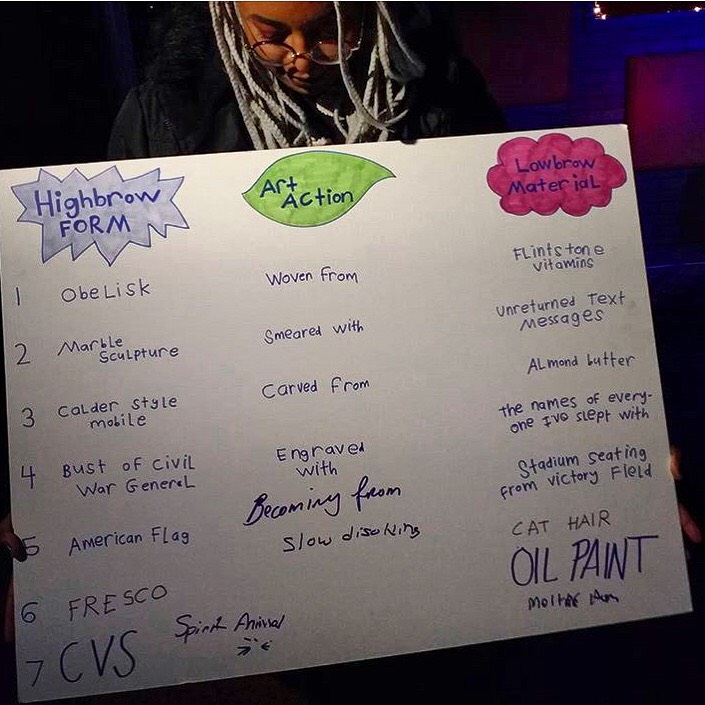 Highbrow
FORM
Art
Action
Lowbrow
Material
1 Obelisk
2 Marble
Sculpture
3 Calder style
mobile
4 Bust of Civil
War General
5 American Flag
6 FRESCO
7 CVS
Woven from
Smeared with
Carved from
Engraved
with
Becoming from
Slow
Spirit Animal
Flintstone
vitamins
Unreturned Text
Messages
Almond butter
the names of every-
one I've slept with
Stadium seating
from victory Field
CAT HAIR
OIL PAINT